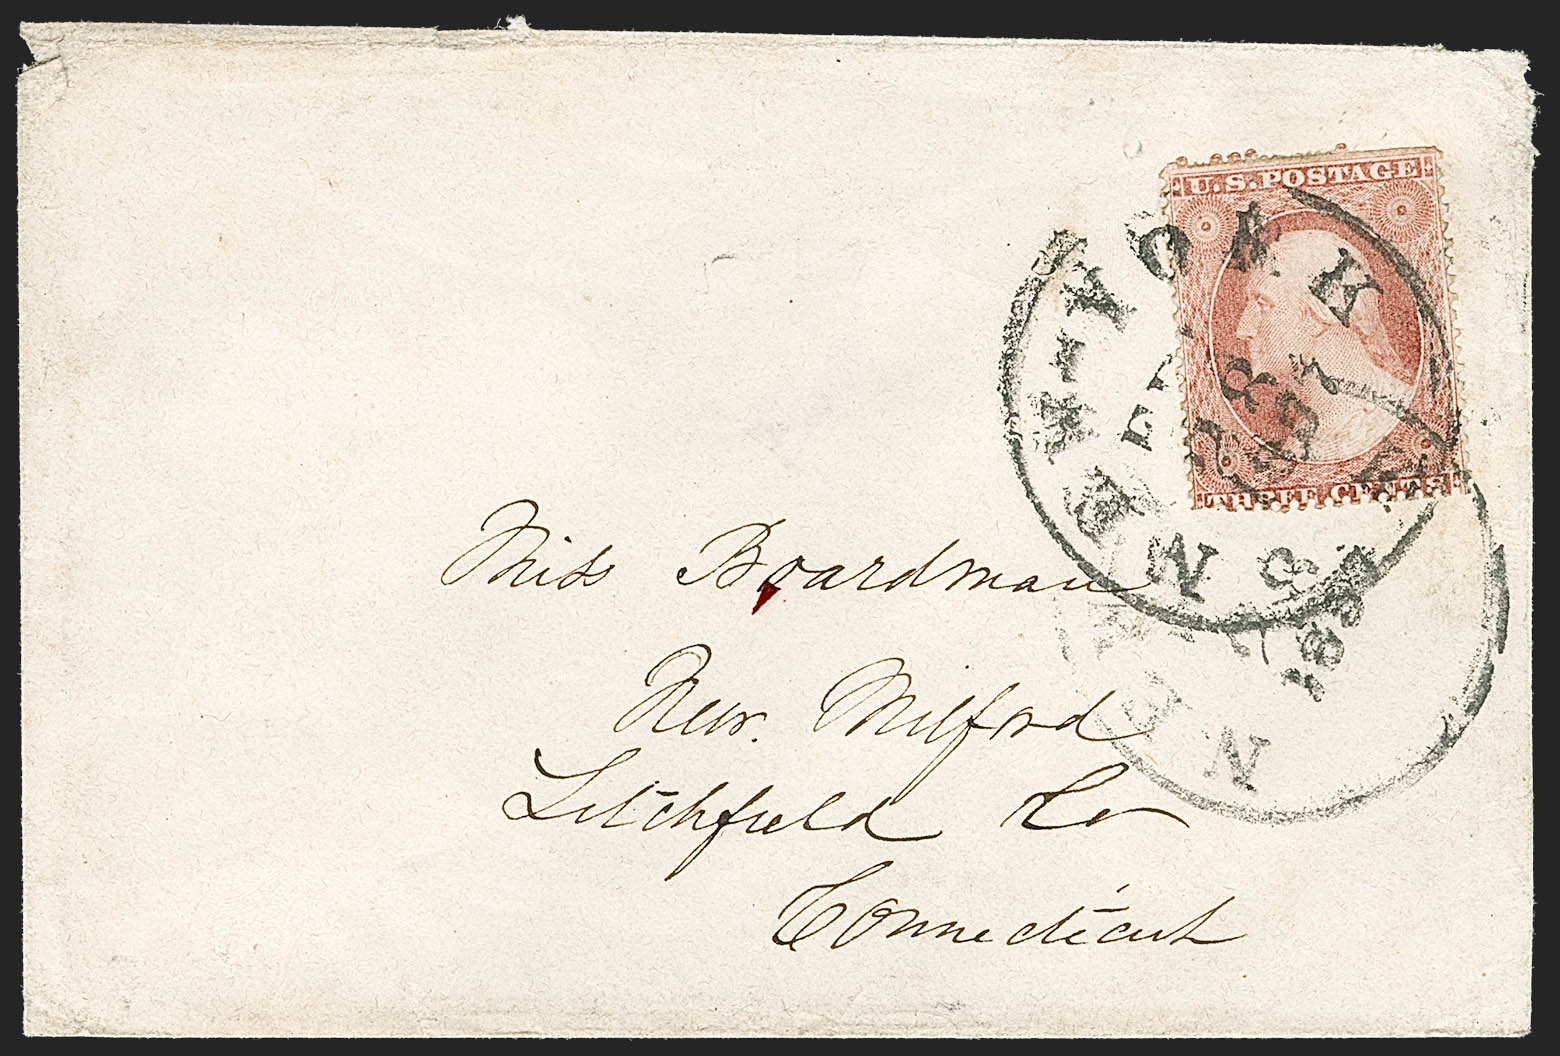 U.S. POSTAGE
THREE CENTS
NEW-YORK
Miss Boardman
New. Milford
Litchfield Co
Connecticut